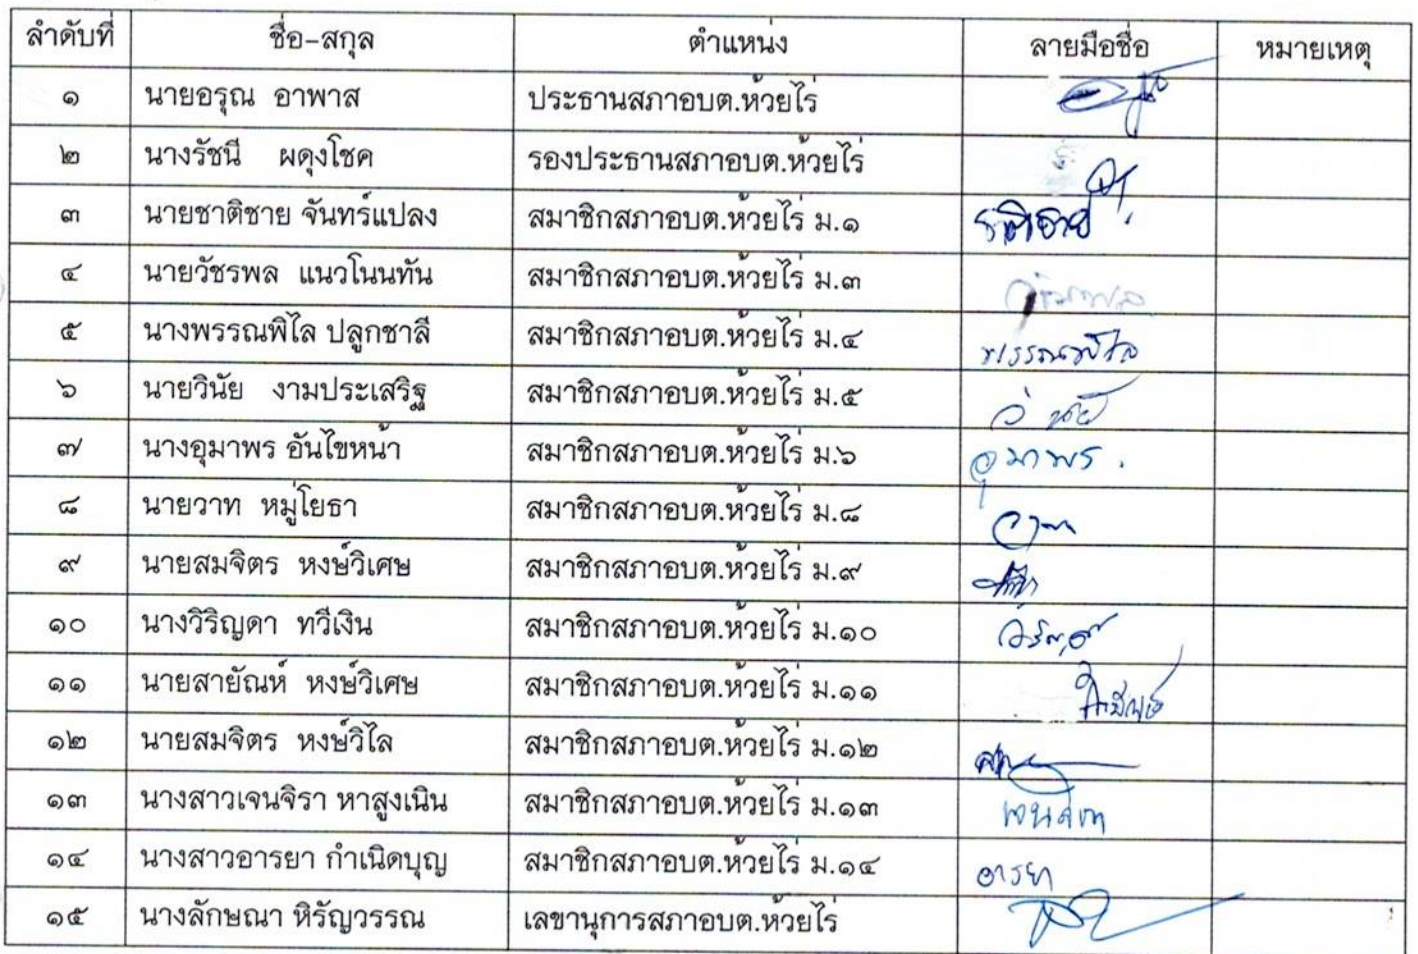 ลำดับที่ ชื่อ-สกุล ตำแหน่ง ลายมือชื่อ หมายเหตุ
๑ นายอรุณ อาพาส ประธานสภาอบต.ห้วยไร่
๒ นางรัชนี ผดุงโชค รองประธานสภาอบต.ห้วยไร่
๓ นายชาติชาย จันทร์แปลง สมาชิกสภาอบต.ห้วยไร่ ม.๑ ชาติชาย
๔ นายวัชรพล แนวโนนทัน สมาชิกสภาอบต.ห้วยไร่ ม.๓ วัชรพล
๕ นางพรรณพิไล ปลูกชาลี สมาชิกสภาอบต.ห้วยไร่ ม.๔ พรรณพิไล
๖ นายวินัย งามประเสริฐ สมาชิกสภาอบต.ห้วยไร่ ม.๕ วินัย
๗ นางอุมาพร อันไขหน้า สมาชิกสภาอบต.ห้วยไร่ ม.๖ อุมาพร.
๘ นายวาท หมู่โยธา สมาชิกสภาอบต.ห้วยไร่ ม.๘
๙ นายสมจิตร หงษ์วิเศษ สมาชิกสภาอบต.ห้วยไร่ ม.๙
๑๐ นางวิริญดา ทวีเงิน สมาชิกสภาอบต.ห้วยไร่ ม.๑๐
๑๑ นายสายัณห์ หงษ์วิเศษ สมาชิกสภาอบต.ห้วยไร่ ม.๑๑
๑๒ นายสมจิตร หงษ์วิไล สมาชิกสภาอบต.ห้วยไร่ ม.๑๒
๑๓ นางสาวเจนจิรา หาสูงเนิน สมาชิกสภาอบต.ห้วยไร่ ม.๑๓ เจนจิรา
๑๔ นางสาวอารยา กำเนิดบุญ สมาชิกสภาอบต.ห้วยไร่ ม.๑๔ อารยา
๑๕ นางลักษณา หิรัญวรรณ เลขานุการสภาอบต.ห้วยไร่